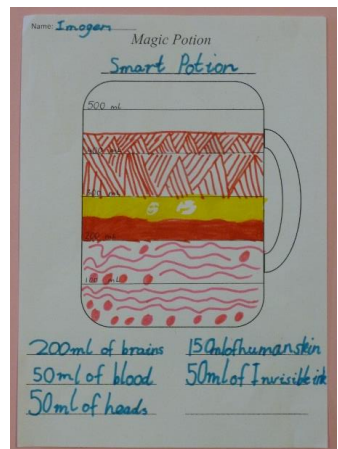 Name: Imogen
Magic Potion
Smart Potion
500 ml
400 ml
300 ml
200 ml
100 ml
200ml of brains
50ml of blood
50ml of heads
150ml of human skin
50ml of Invisible ink